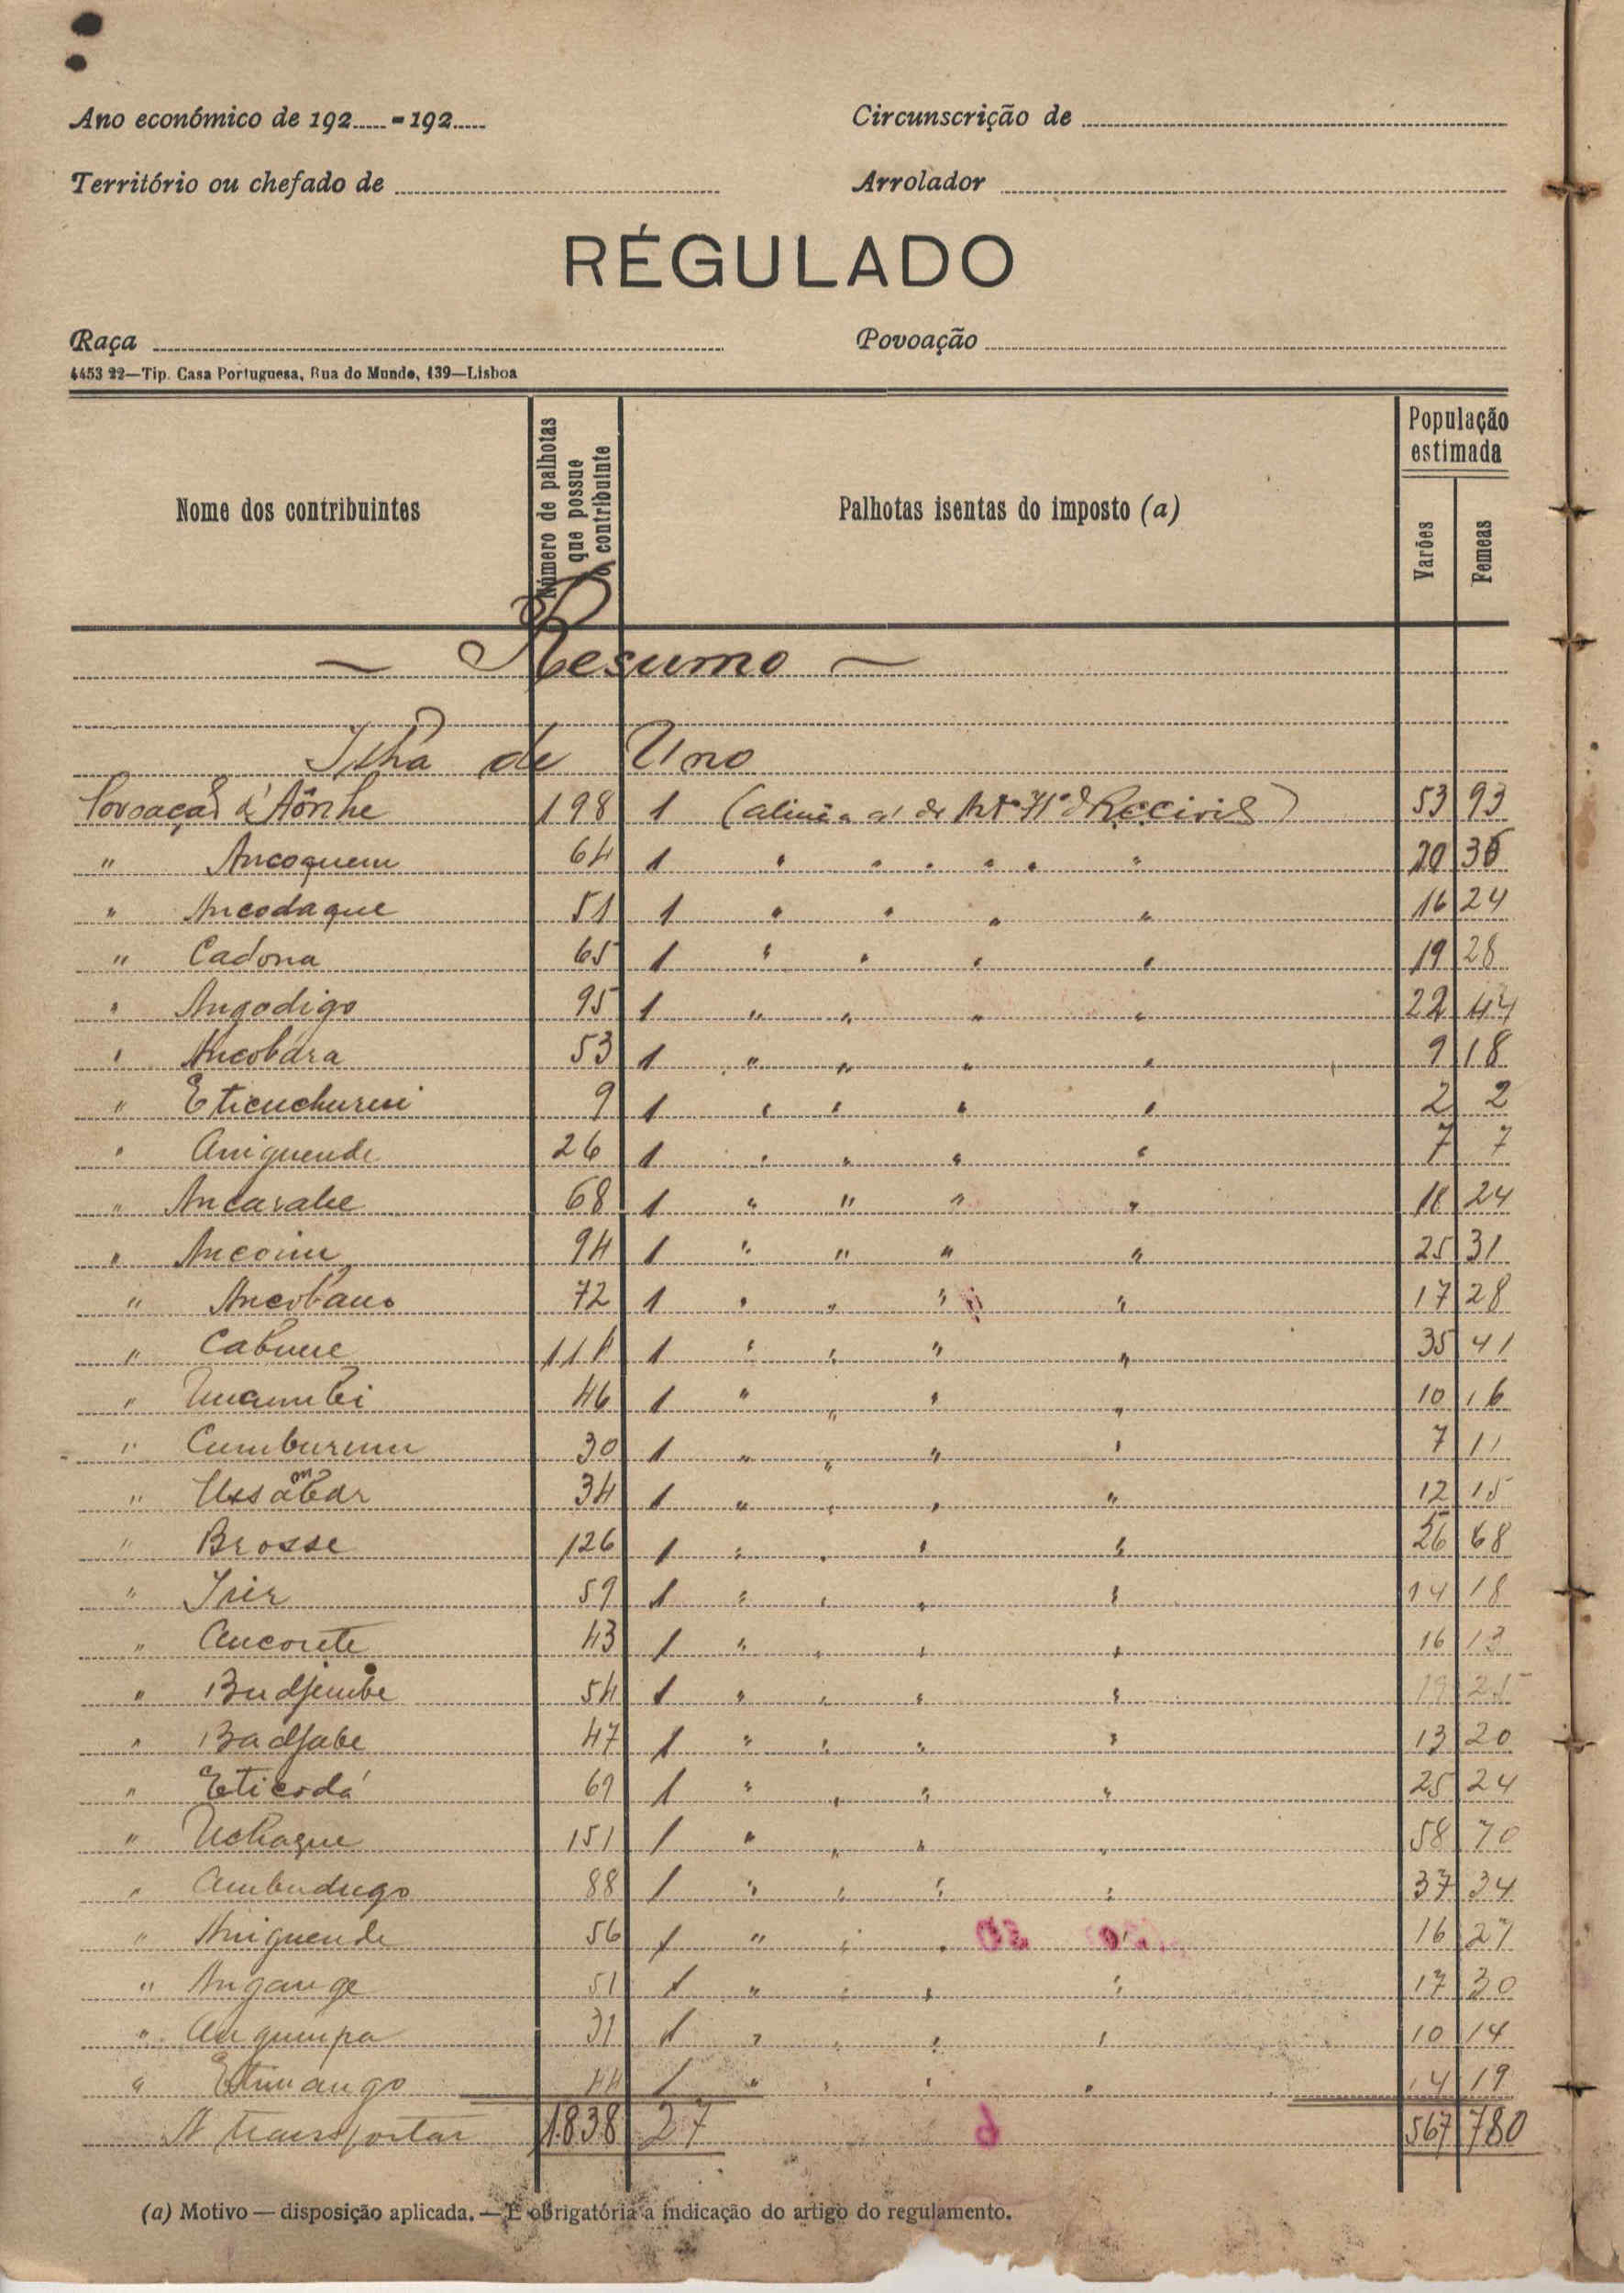 Ano económico de 192.....-192.....
Circunscrição de
Território ou chefado de
Arrolador
RÉGULADO
Raça
Povoação
4453 22—Tip. Casa Portuguesa, Rua do Mundo, 139—Lisboa
Nome dos contribuintes
Número de palhotas que possue o contribuinte
Palhotas isentas do imposto (a)
População estimada
Varões
Femeas
— Resumo —
Ilha de Uno
Povoação d' 198 1 (alinea a) do Artº 71º 53 93
" Ancoquem 64 1 " " " " " " 20 36
" Ancodaque 51 1 " " " " 16 24
" Cadona 65 1 " " " " 19 28
" Angodigo 95 1 " " " " 22 44
" Ancobara 53 1 " " " " 9 18
" Eticuchurui 9 1 " " " " 2 2
" Aniguende 26 1 " " " " 7 7
" Ancarabe 68 1 " " " " 18 24
" Ancoim 94 1 " " " " 25 31
" Ancobano 72 1 " " " " 17 28
" Cabune 1 " " " " 35 41
" 46 1 " " " " 10 16
" Cumburem 30 1 " " " " 7 11
" Ussambar 34 1 " " " " 12 15
" Brosse 126 1 " " " " 26 68
" 59 1 " " " " 14 18
" Ancorete 43 1 " " " " 16 13
" Budjembe 54 1 " " " " 19 25
" Badjabe 47 1 " " " " 13 20
" Eticodá 1 " " " " 25 24
" Uchaque 151 1 " " " " 58 70
" Ambudugo 88 1 " " " " 37 34
" Aniguende 56 1 " " " " 16 27
" Angauge 51 1 " " " " 17 30
" Anguenpa 31 1 " " " " 10 14
" Etimango 44 1 " " " " 14 19
A transportar 1838 27 567 780
(a) Motivo — disposição aplicada. — É obrigatória a indicação do artigo do regulamento.